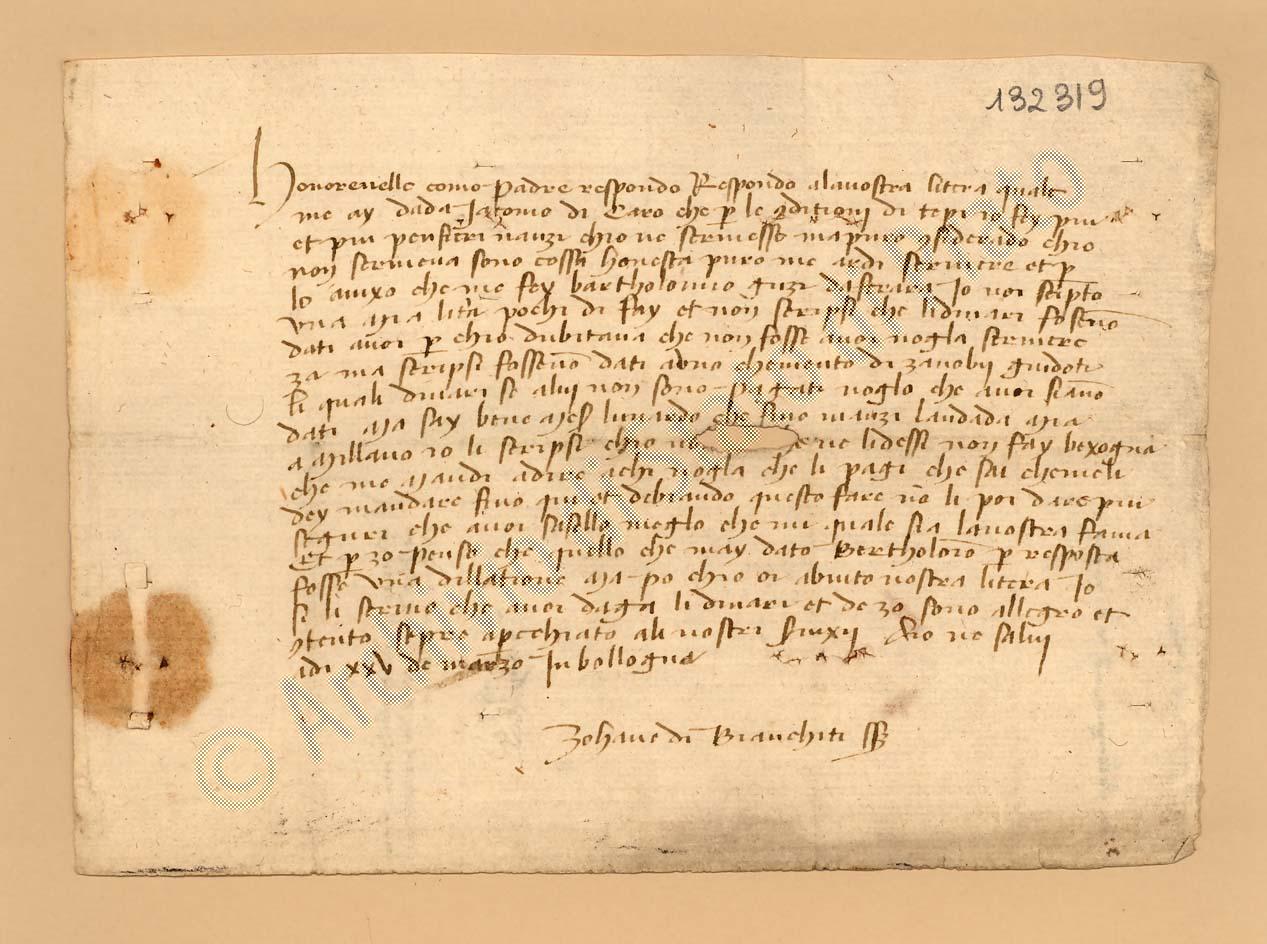 132319
Honorevelle como padre respondo Respondo alavostra litera quale
me ay dada Jacomo di Caro che p le 9ditionj di tepi io fey piu
et piu pensieri nanzi chio ve scrivesse mapuro 9siderado chio
non scriveva sono cossa honesta puro me ardi scrivere et p
lo avixo che me fey bartholomio guzi dastrara Io voi scripto
una mia litra pochi di fay et non scripsi che lidinari foseno
dati avoi p chio dubitava che non fosse avoi nogla scrivere
za ma scripsi fosseno dati aduno chemento di zanobij guidoti
li quali dinari se alui non sono pagati voglo che avoi siano
dati Ma say bene lunardo che fino nanzi landada mia
a Millano io li scripsi chio ve lidessi non fay bexogna
che me mandi adire achi vogla che li pagi che sai chemeli
dey mandare fino qui et debiando questo fare no li poi dare piu
seguri che avoi sasillo meglo che mi quale sia lavostra fama
Et p zo penso che quello che may dato Bertholomo p resposta
fosse una dillatione Ma po chio o abiuto vostra litera Io
si li scrivo che avoi daga li dinari et de zo sono allegro et
9tento sepre apechiato ali vostri
idi xxv de marzo In bollogna
Zohane di Bianchiti
© Archivio di Stato di Prato